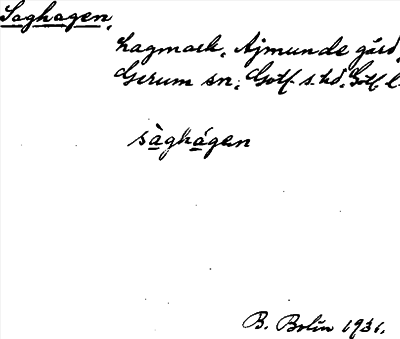 Saghagen,
hagmark, Ajmunde gård,
Gerum sn, Gotl. s. hd. Gotl. l.
sàghágen
B. Bolin 1931.